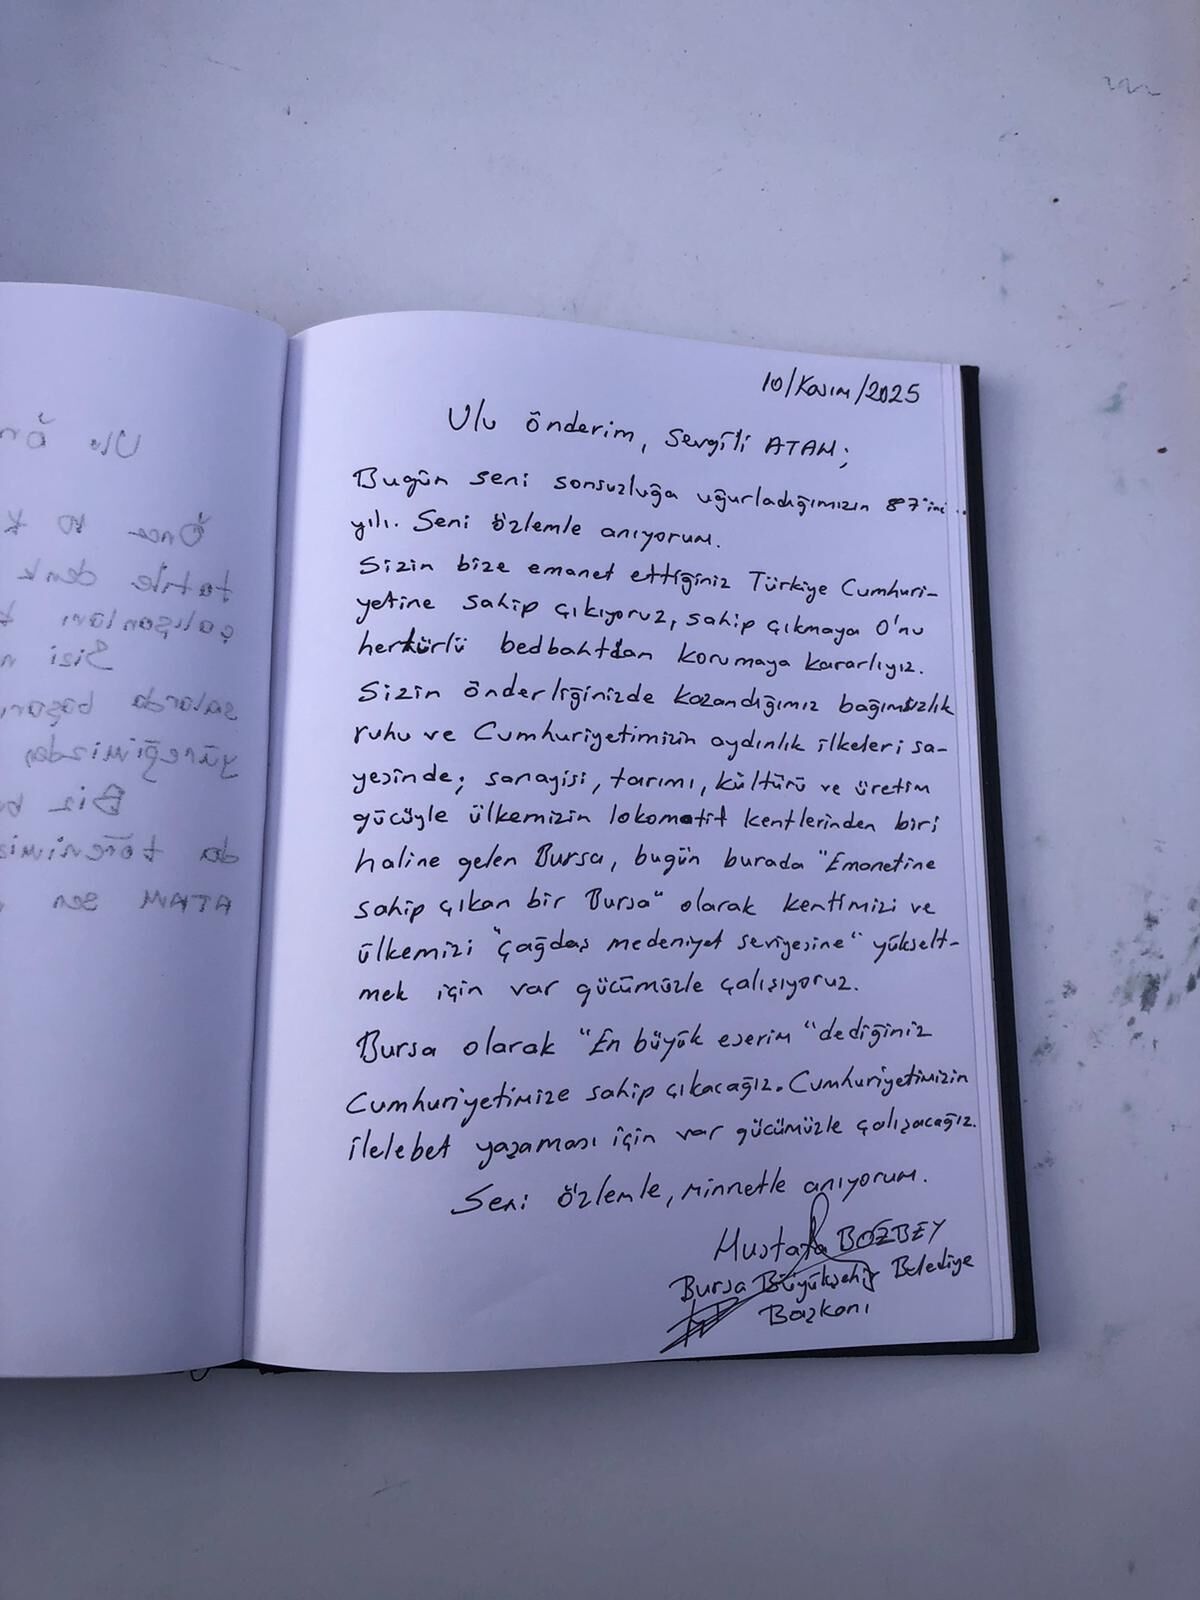 10/Kasım/2025
Ulu Önderim, Sevgili ATAM;
Bugün seni sonsuzluğa uğurladığımızın 87'inci
yılı. Seni özlemle anıyorum.
Sizin bize emanet ettiğiniz Türkiye Cumhuri-
yetine sahip çıkıyoruz, sahip çıkmaya O'nu
hertürlü bedbahtdan korumaya kararlıyız.
Sizin önderliğinizde kazandığımız bağımsızlık
ruhu ve Cumhuriyetimizin aydınlık ilkeleri sa-
yesinde; sanayisi, tarımı, kültürü ve üretim
gücüyle ülkemizin lokomotif kentlerinden biri
haline gelen Bursa, bugün burada "Emanetine
sahip çıkan bir Bursa" olarak kentimizi ve
ülkemizi "çağdaş medeniyet seviyesine" yükselt-
mek için var gücümüzle çalışıyoruz.
Bursa olarak "En büyük eserim" dediğiniz
Cumhuriyetimize sahip çıkacağız. Cumhuriyetimizin
ilelebet yaşaması için var gücümüzle çalışacağız.
Seni özlemle, minnetle anıyorum.
Mustafa BOZBEY
Bursa Büyükşehir Belediye
Başkanı